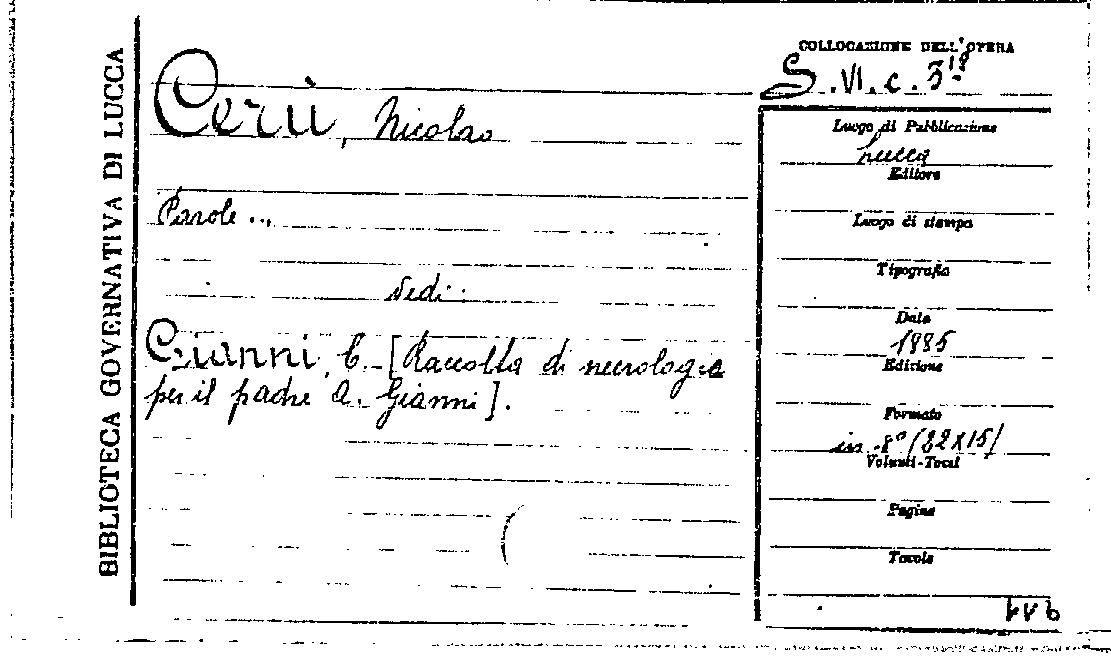 BIBLIOTECA GOVERNATIVA DI LUCCA
Cerù, Nicolao
Parole...
Vedi:
Gianni, C. [Raccolta di necrologie
per il padre A. Gianni].
COLLOCAZIONE DELL'OPERA
S.VI.c.3
Luogo di Pubblicazione
Lucca
Editore
Luogo di stampa
Tipografia
Data
1885
Edizione
Formato
in-8° (22x15)
Volumi-Total
Pagine
Tavole